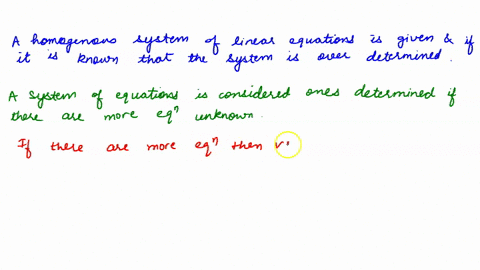 A homogenous system of linear equations is given & if
it is known that the system is over determined.
A system of equations is considered ones determined if
there are more eqⁿ unknown.
If there are more eqⁿ then